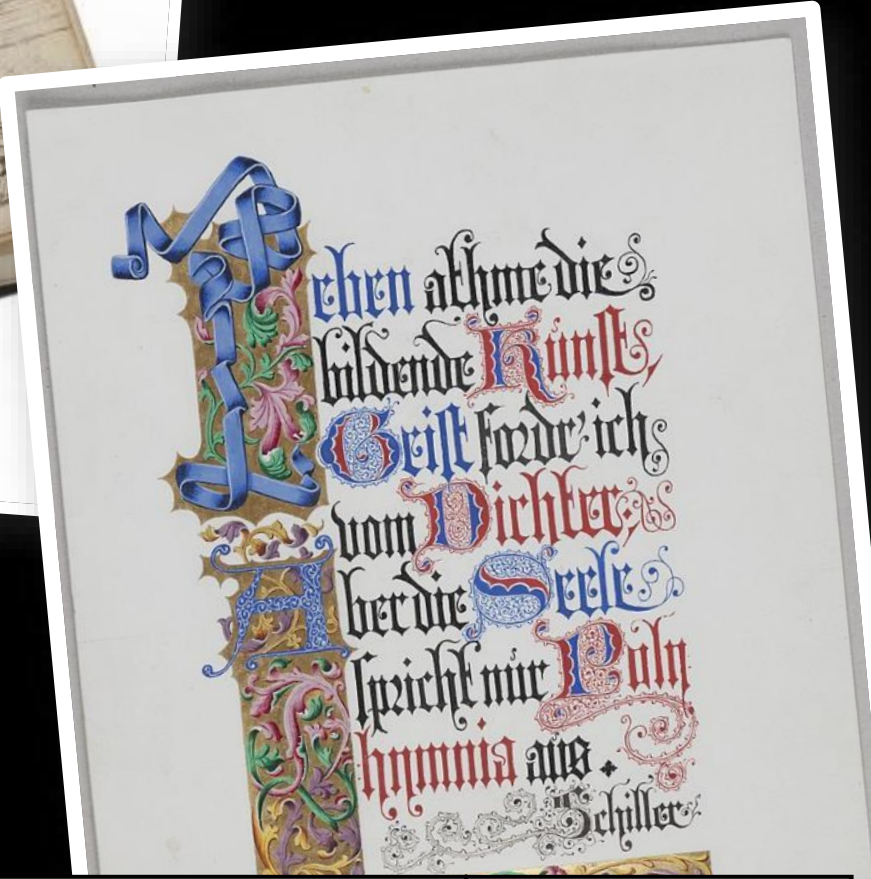 Leben athme die
bildende Kunst,
Geist fordr' ich
vom Dichter;
Aber die Seele
spricht nur Poly
hymnia aus.
Schiller